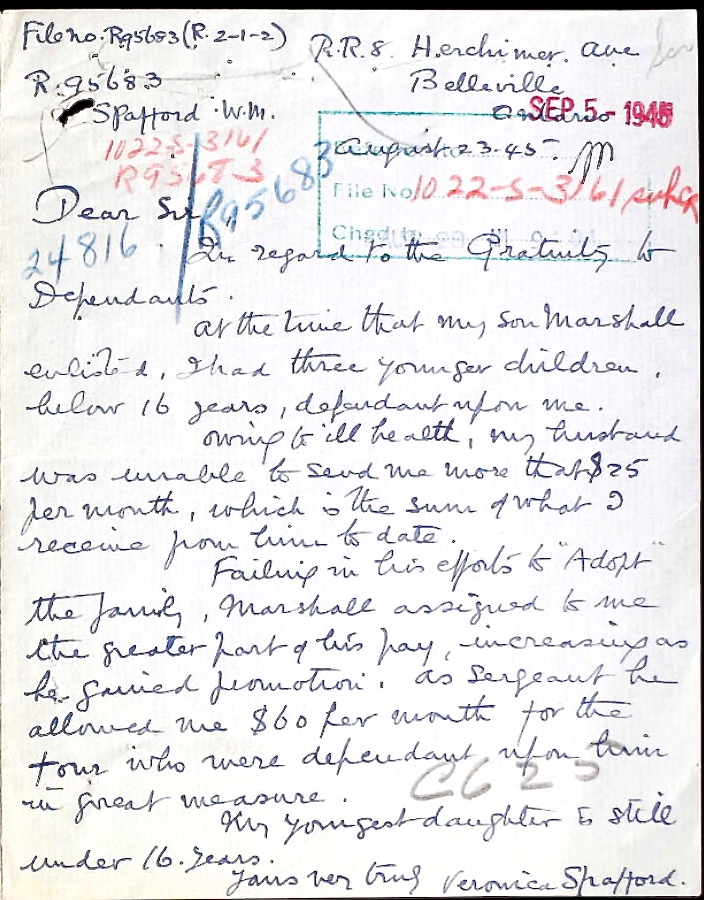 File no. R95683 (R. 2-1-2)
R.R.8. Herchimer. Ave
Belleville
Ontario
SEP 5 - 1945
R. 95683
Spafford W.M.
1022-S-3161
R95683
August 23-45.
File No. 1022-S-3161
R95683
Chgd to
Dear Sir,
24816
In regard to the Gratuity to
Dependants.
At the time that my son Marshall
enlisted, I had three younger children,
below 16 years, dependant upon me.
Owing to ill health, my husband
was unable to send me more that $25
per month, which is the sum of what I
receive from him to date.
Failing in his efforts to "Adopt"
the family, Marshall assigned to me
the greater part of his pay, increasing as
he gained promotion. As Sergeant he
allowed me $60 per month for the
four who were dependant upon him
in great measure.
C6255
My youngest daughter is still
under 16. years.
Yours very truly Veronica Spafford.